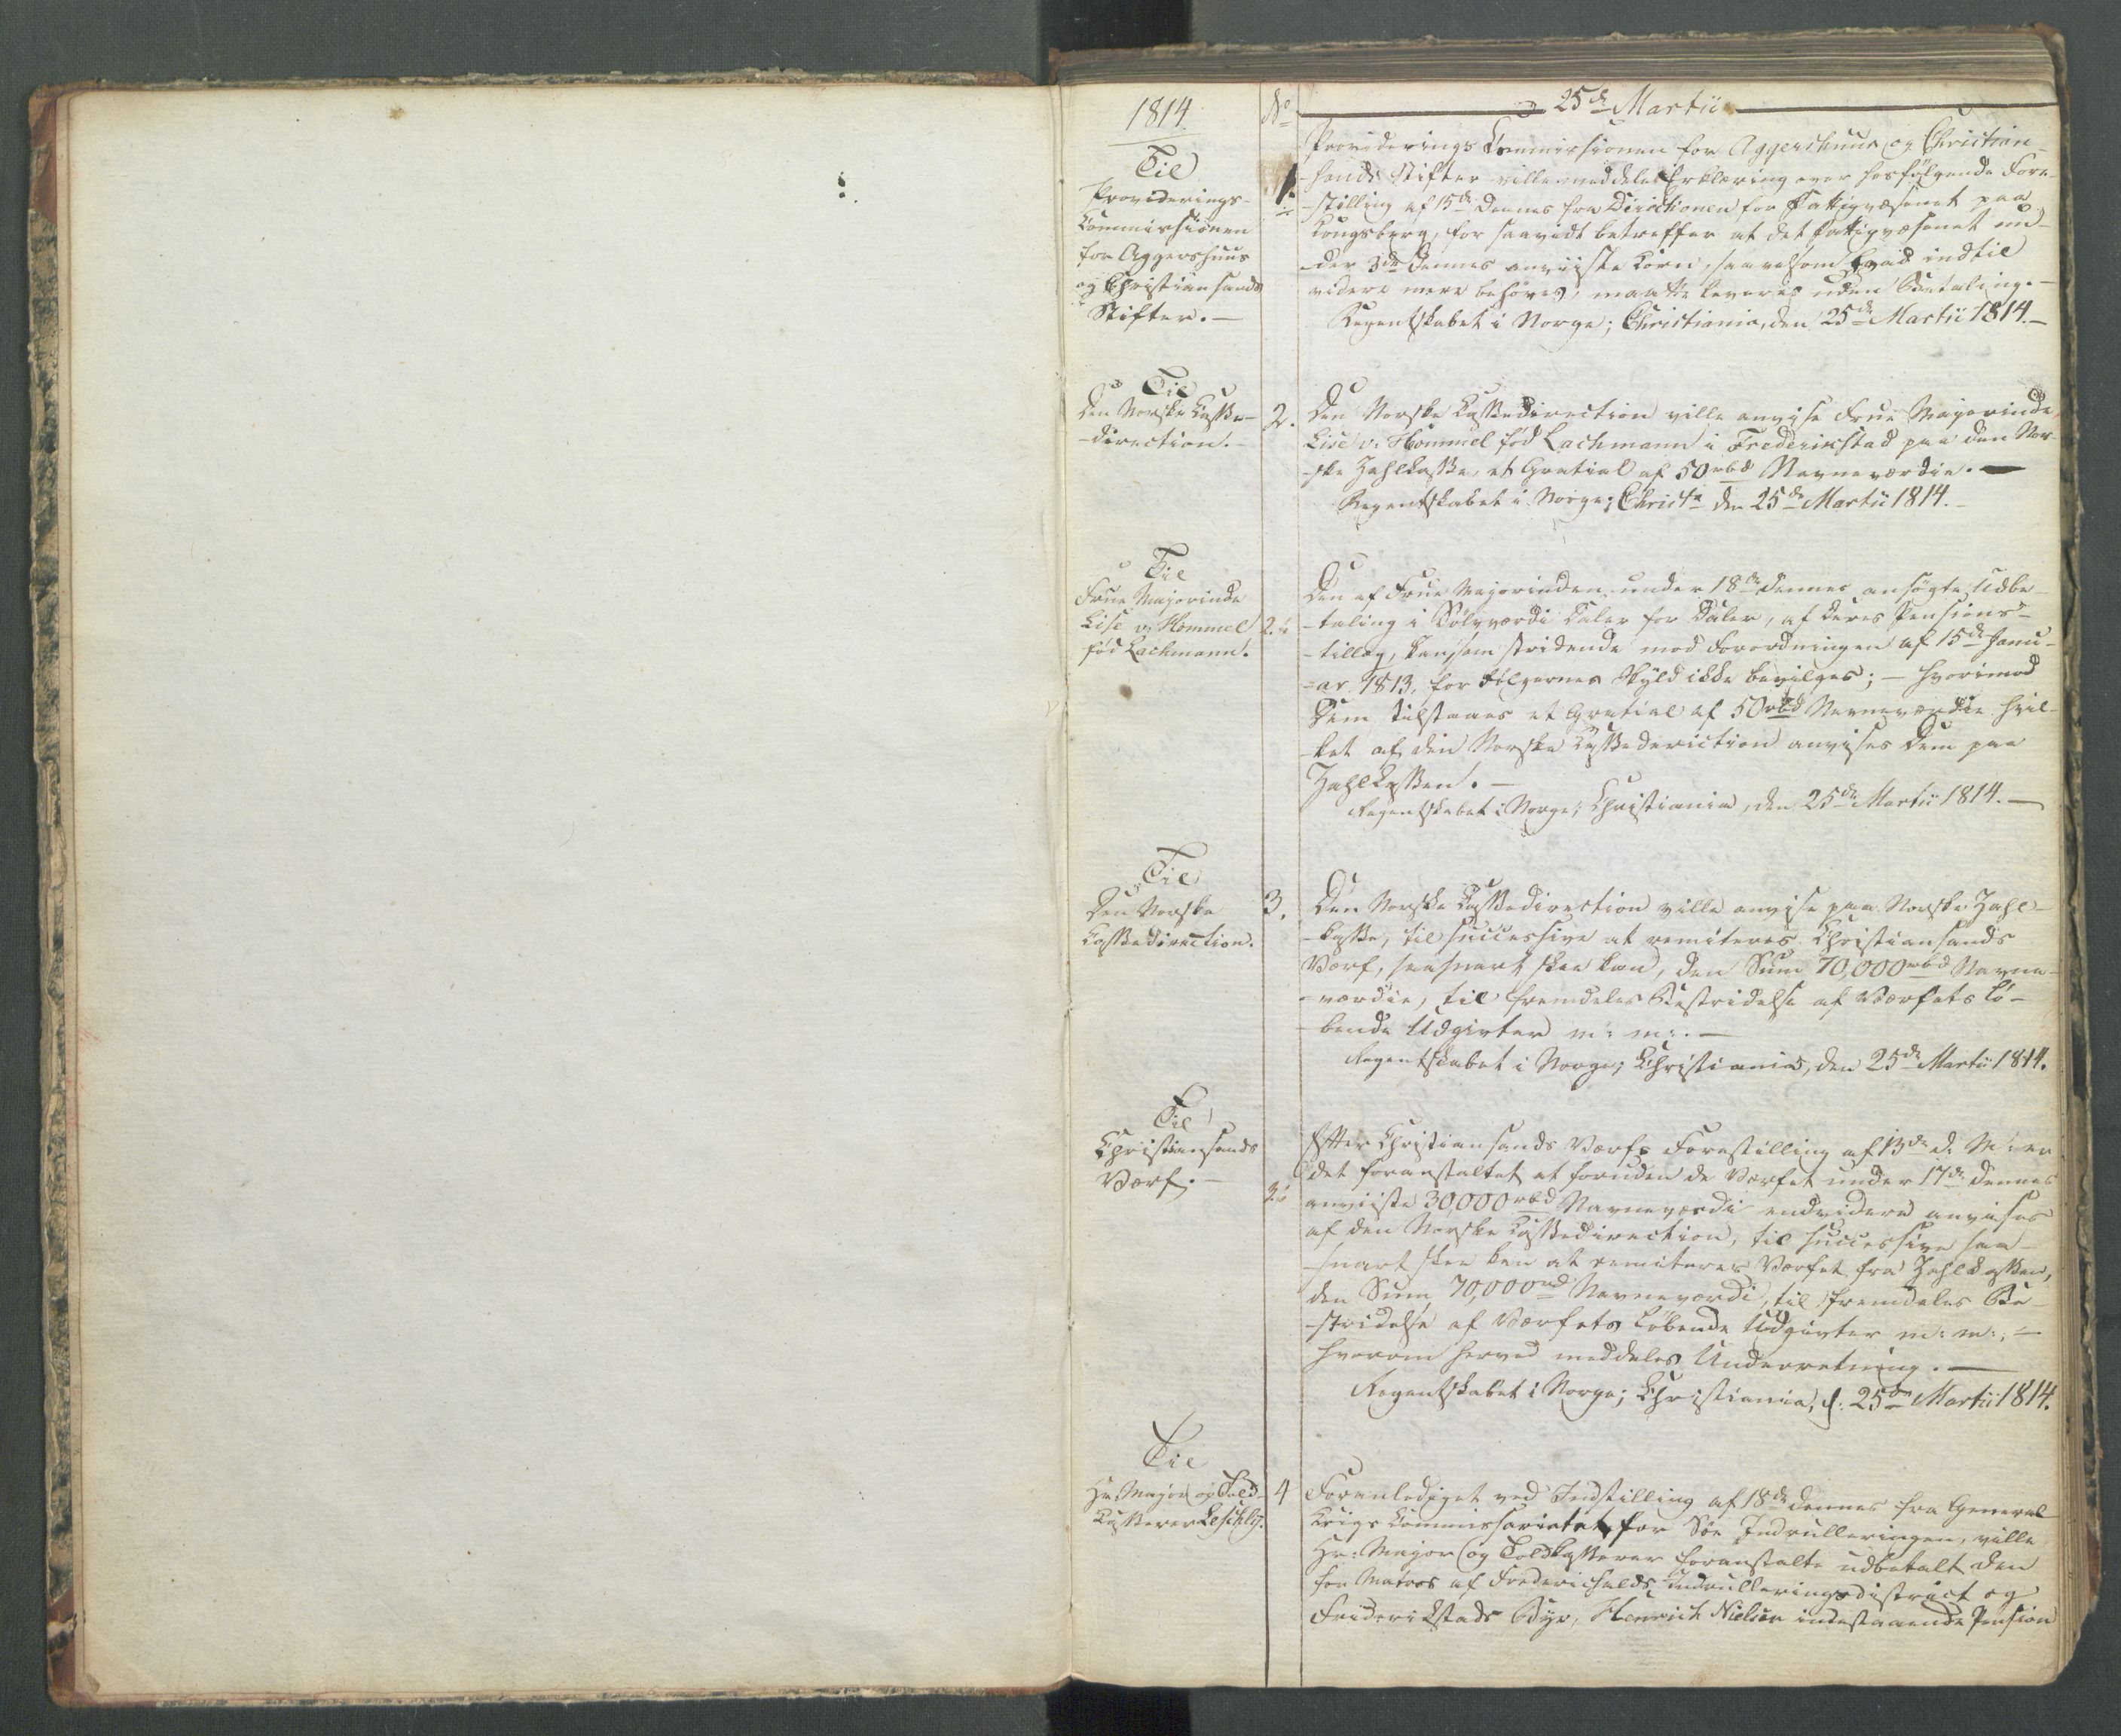 1814.
No
25de Martii
Til
Providerings-
Commissionen
for Aggershuus
og Christiansands
Stifter. —
1.
Providerings Commissionen for Aggershuus og Christian-
sands Stifter ville meddele Erklæring over hosfølgende Fore-
-stilling af 15de dennes fra Directionen for Fattigvæsenet paa
Kongsberg, for saavidt betreffer at det Fattigvæsenet un-
der 3de dennes anviiste Korn, saavelsom hvad indtil
videre mere behøves, maatte leveres uden Betaling. —
Regentskabet i Norge; Christiania, den 25de Martii 1814. —
Til
Den Norske Casse-
-direction. —
2.
Den Norske Cassedirection ville anvise Frue Majorinde
Lise v. Hommel fød Lachmann i Frederikstad paa den Nor-
-ske Zahlkasse, et Gratial af 50 rbd Navneværdie. —
Regentskabet i Norge; Christa den 25de Martii 1814. —
Til
Frue Majorinde
Lise v. Hommel
fød Lachmann.
2.
Den af Frue Majorinden under 18de dennes ansøgte Udbe-
-taling i Sølvværdi Daler for Daler, af Deres Pensions-
-tillæg, kan, som stridende mod Forordningen af 15de Janu-
-ar 1813, for Følgernes Skyld ikke bevilges; — hvorimod
Dem tilstaaes et Gratial af 50 rbd Navneværdie hvil-
-ket af den Norske Cassedirection anvises Dem paa
Zahlkassen. —
Regentskabet i Norge; Christiania, den 25de Martii 1814. —
Til
Den Norske
Cassedirection.
3.
Den Norske Cassedirection ville anvise paa Norske Zahl-
-kasse, til successive at remiteres Christiansands
Værf, saasnart skee kan, den Sum 70,000 rbd Navne-
-værdie, til fremdeles Bestridelse af Værfets lø-
-bende Udgivter m: m:. —
Regentskabet i Norge; Christiania, den 25de Martii 1814.
Til
Christiansands
Værf. —
3.
Efter Christiansands Værfs Forestilling af 13de d: M: er
det foranstaltet at foruden de Værfet under 17de dennes
anviiste 30,000 rbd Navneværdi endvidere anvises
af den Norske Cassedirection, til successive saa-
-snart skee kan at remiteres Værfet fra Zahlkassen,
den Sum 70,000 rbd Navneværdi, til fremdeles Be-
-stridelse af Værfets løbende Udgivter m: m:, —
hvorom herved meddeles Underretning. —
Regentskabet i Norge; Christiania, d: 25de Martii 1814.
Til
Hr: Major og Told-
Kasserer
4
Foranlediget ved Indstilling af 18de dennes fra General
Krigs Commissariatet for Søe Indrulleringen, ville
Hr: Major og Toldkasserer foranstalte udbetalt den
for Matros af Fredericshalds Indrulleringsdistrict og
Friderikstads Bye, Henrich Nielsen indestaaende Pension